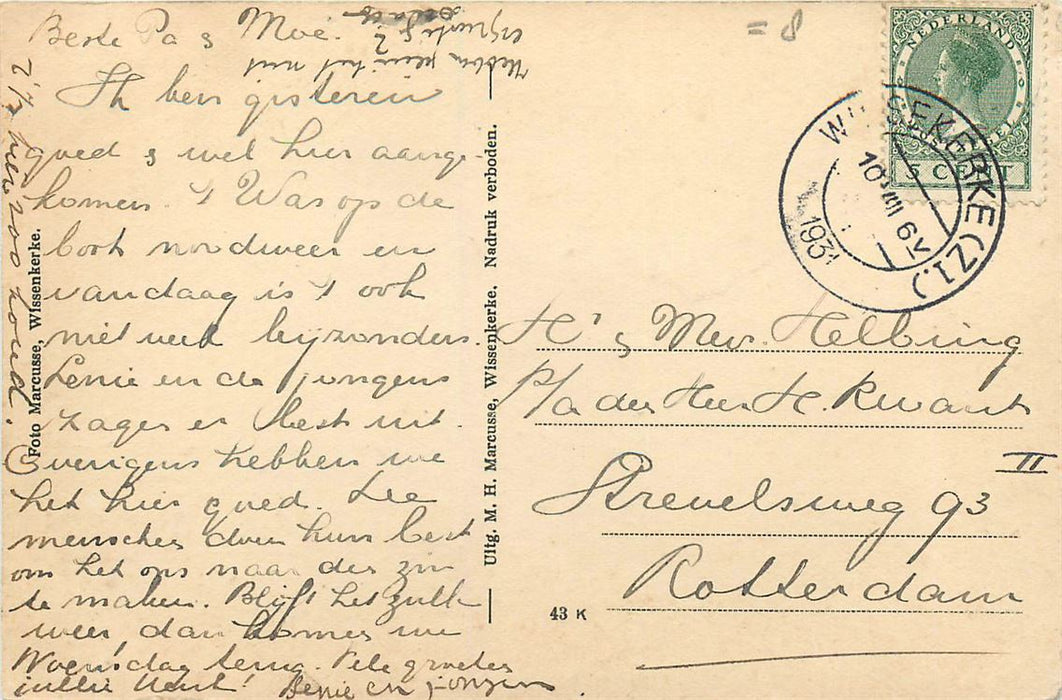 Beste Pa & Moe.
Ik ben gisteren
goed & wel hier aange-
komen. 't Was op de
boot noodweer en
vandaag is 't ook
niet veel bijzonders.
Lenie en de jongens
zagen er best uit.
Overigens hebben we
het hier goed. De
menschen doen hun best
om het ons naar den zin
te maken. Blijft het zulk
weer, dan komen we
Woensdag terug. Vele groeten
jullie
en jongens
hier zoo koud.
Foto Marcusse, Wissenkerke.
Uitg. M. H. Marcusse, Wissenkerke. Nadruk verboden.
43 K
= 8
NEDERLAND
5 CENT
WISSEKERKE (ZL.)
10 VIII 6 V
1931
Hr & Mevr. Helbing
P/a den Heer H. Kwant
Strevelsweg 93
II
Rotterdam